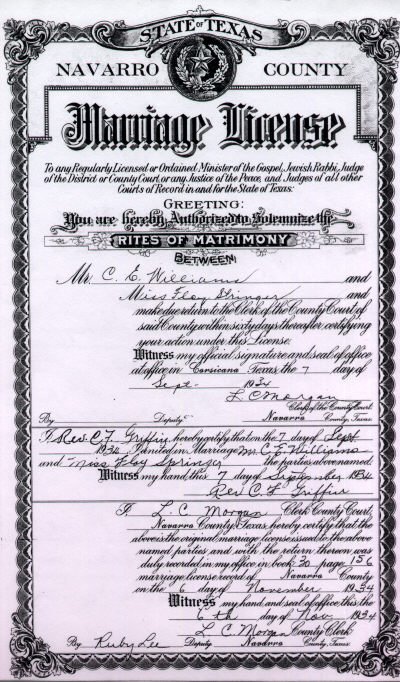 STATE OF TEXAS
NAVARRO COUNTY
Marriage License
To any Regularly Licensed or Ordained Minister of the Gospel, Jewish Rabbi, Judge
of the District or County Court, or any Justice of the Peace, and Judges of all other
Courts of Record in and for the State of Texas:
GREETING:
You are hereby Authorized to Solemnize the
RITES OF MATRIMONY
BETWEEN
Mr. C. E. Williams and
Miss Floy Stringer and
make due return to the Clerk of the County Court of
said County within sixty days thereafter certifying
your action under this License.
Witness my official signature and seal of office
at office in Corsicana Texas the 7 day of
Sept. 1934
L C Morgan
Clerk of the County Court.
By Deputy. Navarro County, Texas.
I, Rev. C F. Griffin hereby certify that on the 7 day of Sept
1934 I united in Marriage Mr. C. E. Williams
and Miss Floy Springer the parties above named.
Witness my hand this 7 day of September 1934
Rev C. F Griffin
I L. C. Morgan Clerk County Court,
Navarro County, Texas, hereby certify that the
above is the original marriage license issued to the above
named parties and with the return thereon was
duly recorded in my office in book 30 page 156
marriage license record of Navarro County
on the 6 day of November 1934
Witness my hand and seal of office this the
6th day of Nov. 1934
L. C. Morgan County Clerk
By Ruby Lee Deputy. Navarro County, Texas